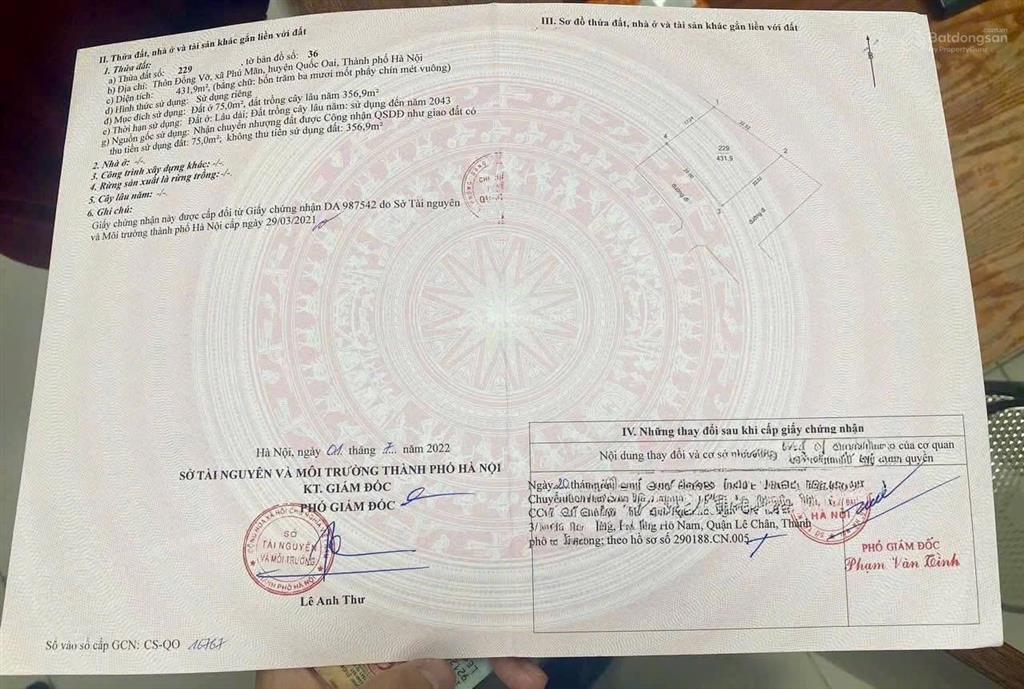 II. Thửa đất, nhà ở và tài sản khác gắn liền với đất
1. Thửa đất:
a) Thửa đất số: 229 , tờ bản đồ số: 36
b) Địa chỉ: Thôn Đồng Vỡ, xã Phú Mãn, huyện Quốc Oai, Thành phố Hà Nội
c) Diện tích: 431,9m², (bằng chữ: bốn trăm ba mươi mốt phẩy chín mét vuông)
d) Hình thức sử dụng: Sử dụng riêng
đ) Mục đích sử dụng: Đất ở 75,0m², đất trồng cây lâu năm 356,9m²
e) Thời hạn sử dụng: Đất ở: Lâu dài; Đất trồng cây lâu năm: sử dụng đến năm 2043
g) Nguồn gốc sử dụng: Nhận chuyển nhượng đất được Công nhận QSDĐ như giao đất có
thu tiền sử dụng đất: 75,0m²; không thu tiền sử dụng đất: 356,9m²
2. Nhà ở: -/-.
3. Công trình xây dựng khác: -/-.
4. Rừng sản xuất là rừng trồng: -/-.
5. Cây lâu năm: -/-.
6. Ghi chú:
Giấy chứng nhận này được cấp đổi từ Giấy chứng nhận DA 987542 do Sở Tài nguyên
và Môi trường thành phố Hà Nội cấp ngày 29/03/2021
Hà Nội, ngày 01 tháng 7 năm 2022
SỞ TÀI NGUYÊN VÀ MÔI TRƯỜNG THÀNH PHỐ HÀ NỘI
KT. GIÁM ĐỐC
PHÓ GIÁM ĐỐC
SỞ
TÀI NGUYÊN
VÀ MÔI TRƯỜNG
THÀNH PHỐ HÀ NỘI
Lê Anh Thư
Số vào sổ cấp GCN: CS-QO 16767
III. Sơ đồ thửa đất, nhà ở và tài sản khác gắn liền với đất
Batdongsan
by PropertyGuru
B
1
4
229
431,9
2
3
đường đi
đường đi
IV. Những thay đổi sau khi cấp giấy chứng nhận
Nội dung thay đổi và cơ sở của cơ quan
quyền
Ngày 20 tháng
Chuyển
Nam, Quận Lê Chân, Thành
theo hồ sơ số 290188.CN.005
HÀ NỘI
PHÓ GIÁM ĐỐC
Phạm Văn Tình